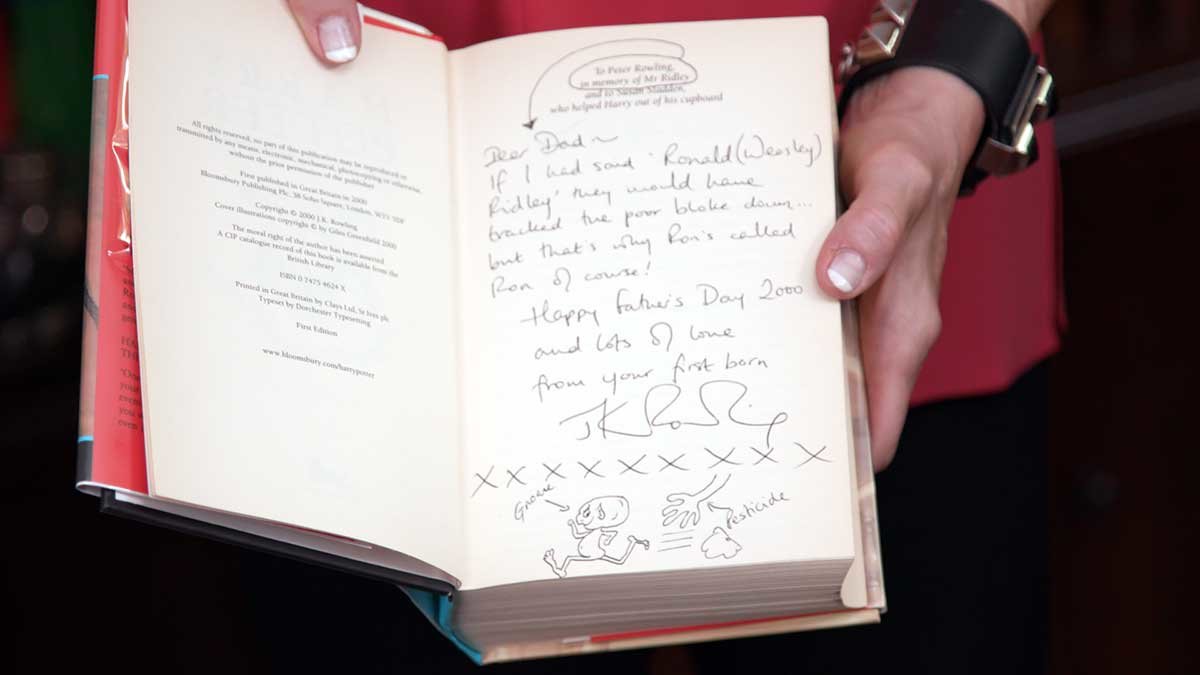 All rights reserved, no part of this publication may be reproduced or
transmitted by any means, electronic, mechanical, photocopying or otherwise,
without the prior permission of the publisher
First published in Great Britain in 2000
Bloomsbury Publishing Plc, 38 Soho Square, London, W1V 5DF
Copyright © 2000 J.K. Rowling
Cover illustrations copyright © by Giles Greenfield 2000
The moral right of the author has been asserted
A CIP catalogue record of this book is available from the
British Library
ISBN 0 7475 4624 X
Printed in Great Britain by Clays Ltd, St Ives plc
Typeset by Dorchester Typesetting
First Edition
www.bloomsbury.com/harrypotter
To Peter Rowling,
in memory of Mr Ridley
and to Susan Sladden,
who helped Harry out of his cupboard
Dear Dad ~
If I had said 'Ronald (Weasley)
Ridley' they would have
tracked the poor bloke down...
but that's why Ron's called
Ron of course!
Happy Father's Day 2000
and lots of love
from your first born
JK Rowling
X X X X X X X X X
Gnome
Pesticide